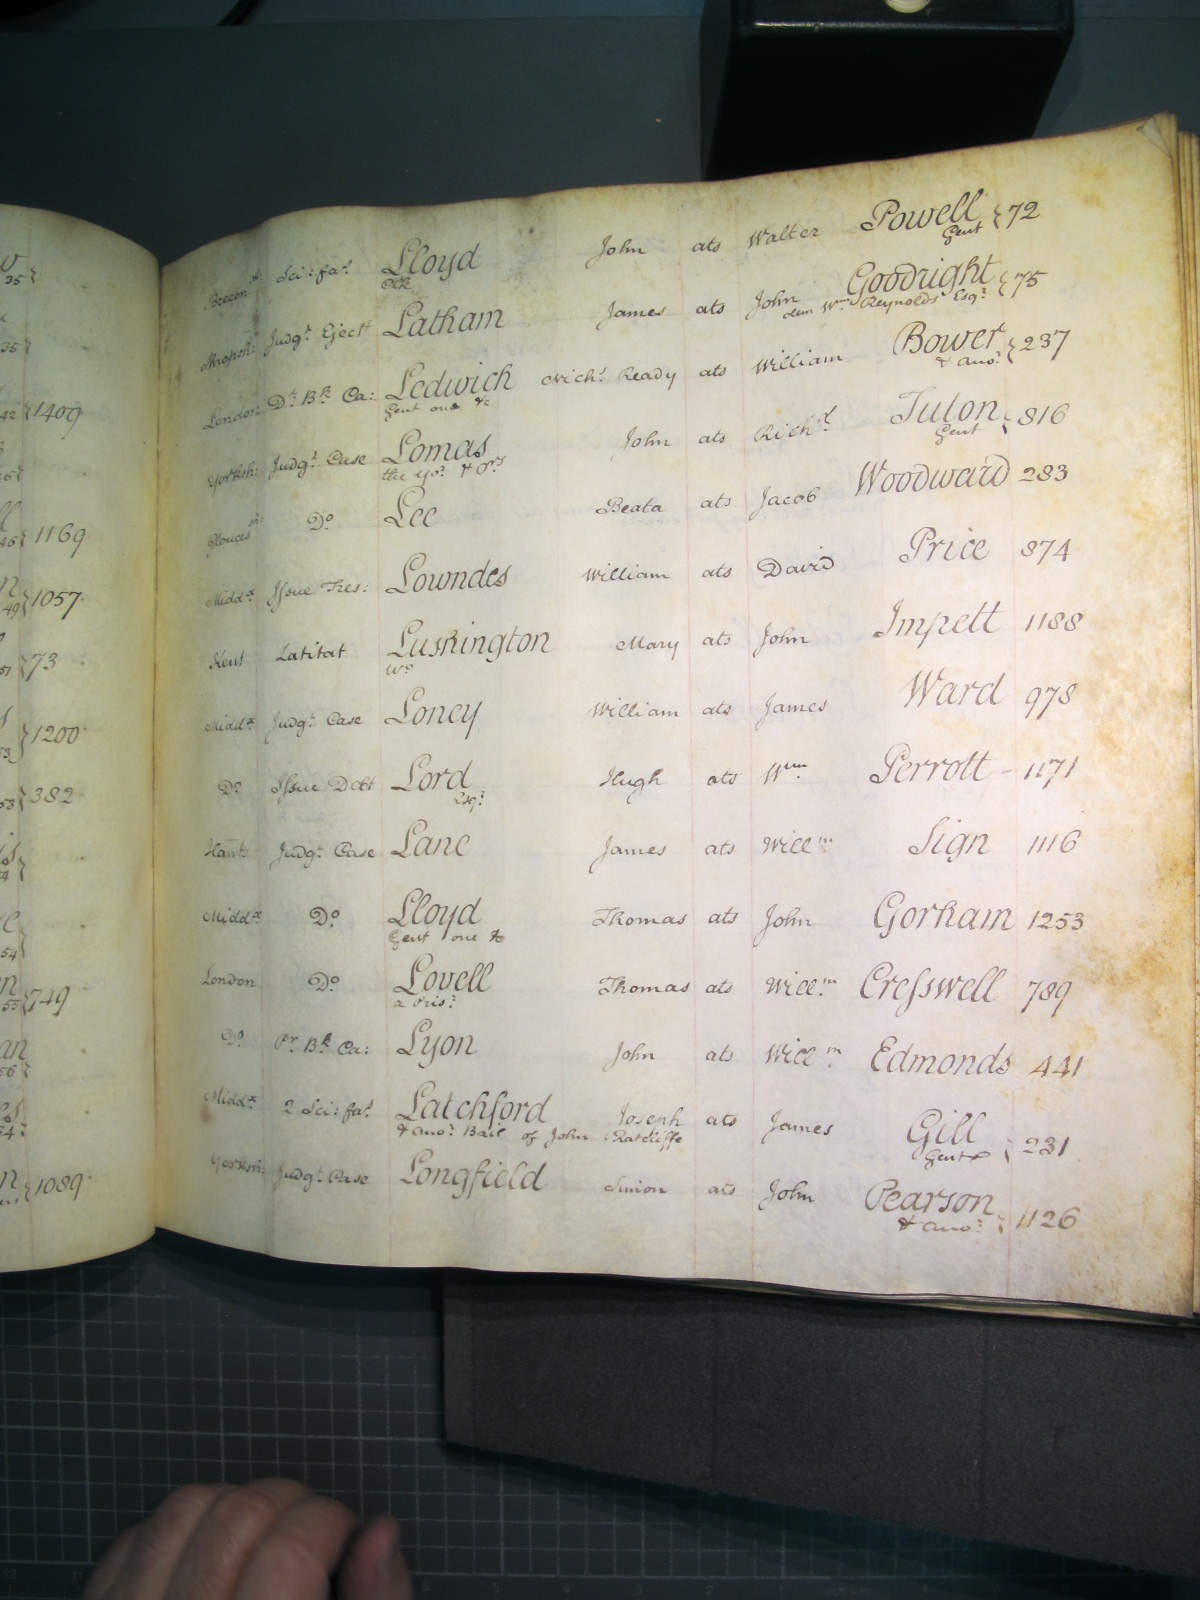 35
35
42 1409
1169
49 1057
73
1200
382
54
55 749
56
1089
Brecon Sci: fa.s Lloyd John ats Walter Powell 72
Clk Gent
Shropsh: Judg.t Eject.t Latham James ats John Goodright 75
dem W.m Reynolds Esq.r
London D.r B.k Ca: Ledwich Mich.l Ready ats William Bower 237
Gent one &c & ano.r
Yorksh: Judg.t Case Lomas John ats Rich.d Tuton 816
the yo.r & Ors Gent
Glouces D.o Lee Beata ats Jacob Woodward 283
Midd.x Issue Tres: Lowndes William ats David Price 874
Kent Latitat Lushington Mary ats John Impett 1188
W.o
Midd.x Judg.t Case Loney William ats James Ward 978
D.o Issue Debt Lord Hugh ats W.m Perrott - 1171
Esq.r
Hants Judg.t Case Lane James ats Will.m Sign 1116
Midd.x D.o Lloyd Thomas ats John Gorham 1253
Gent one &c
London D.o Lovell Thomas ats Will.m Cresswell 789
a Pris.r
D.o Pr. B.k Ca: Lyon John ats Will.m Edmonds 441
Midd.x 2 Sci: fa.s Latchford Joseph ats James Gill 231
& ano.r Bail of John Ratcliffe Gent
Yorksh: Judg.t Case Longfield Simon ats John Pearson 1126
& ano.r